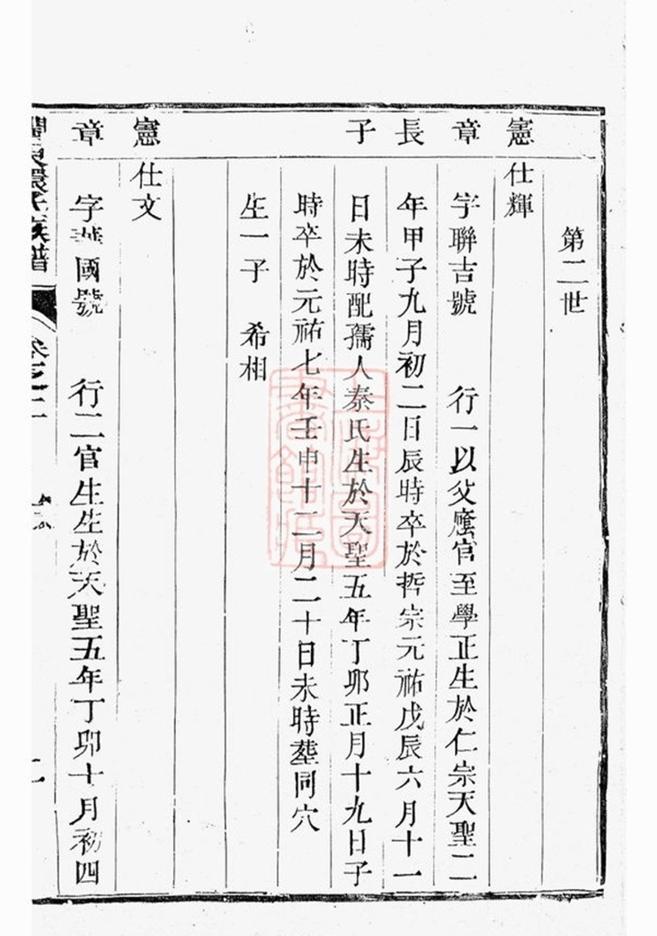 第二世
憲 仕輝
章 字聯吉號 行一以父廕官至學正生於仁宗天聖二
長 年甲子九月初二日辰時卒於哲宗元祐戊辰六月十一
子 日未時配孺人秦氏生於天聖五年丁卯正月十九日子
時卒於元祐七年壬申十二月二十日未時塟同穴
生一子 希相
憲 仕文
章 字華國號 行二官生生於天聖五年丁卯十月初四
氏族譜 卷之二